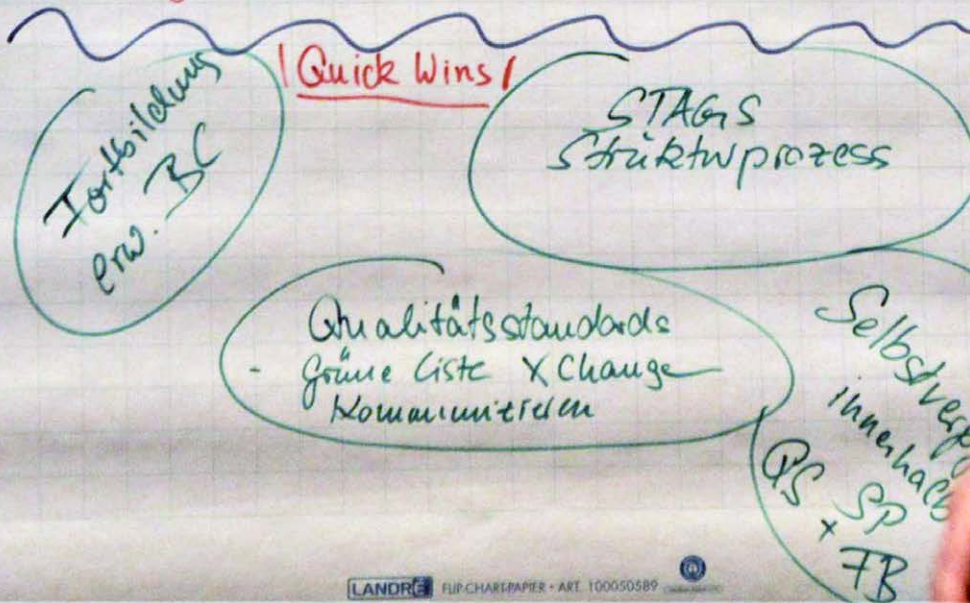 Quick Wins
Fortbildung
erw. BC
STAGS
Strukturprozess
Qualitätsstandards
- Grüne Liste XChange
kommunizieren
innerhalb
QS x SP
FB
LANDRÉ FLIP-CHART-PAPIER • ART. 100050589